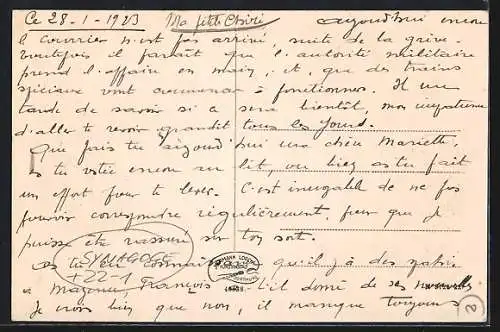 Ce 28-1-1923 Ma petite Chérie aujourd'hui encore
le courrier n'est pas arrivé, suite de la grève.
toutefois il paraît que l'autorité militaire
prend l'affaire en main, et, que des trains
spéciaux vont commencer à fonctionner. Il me
tarde de savoir si ce sera bientôt, mon impatience
d'aller te revoir grandit tous les jours.
Que fais tu aujourd'hui ma chère Mariette
es tu restée encore au lit, ou bien as tu fait
un effort pour te lever. C'est incroyable de ne pas
pouvoir correspondre régulièrement, pour que je
puisse être rassuré sur ton sort.
as tu eu connaissance qu'il y a des
à François a t'il donné de ses nouvelles
Je crois bien que non, il manque toujours
SYNAGOGE
+22-1